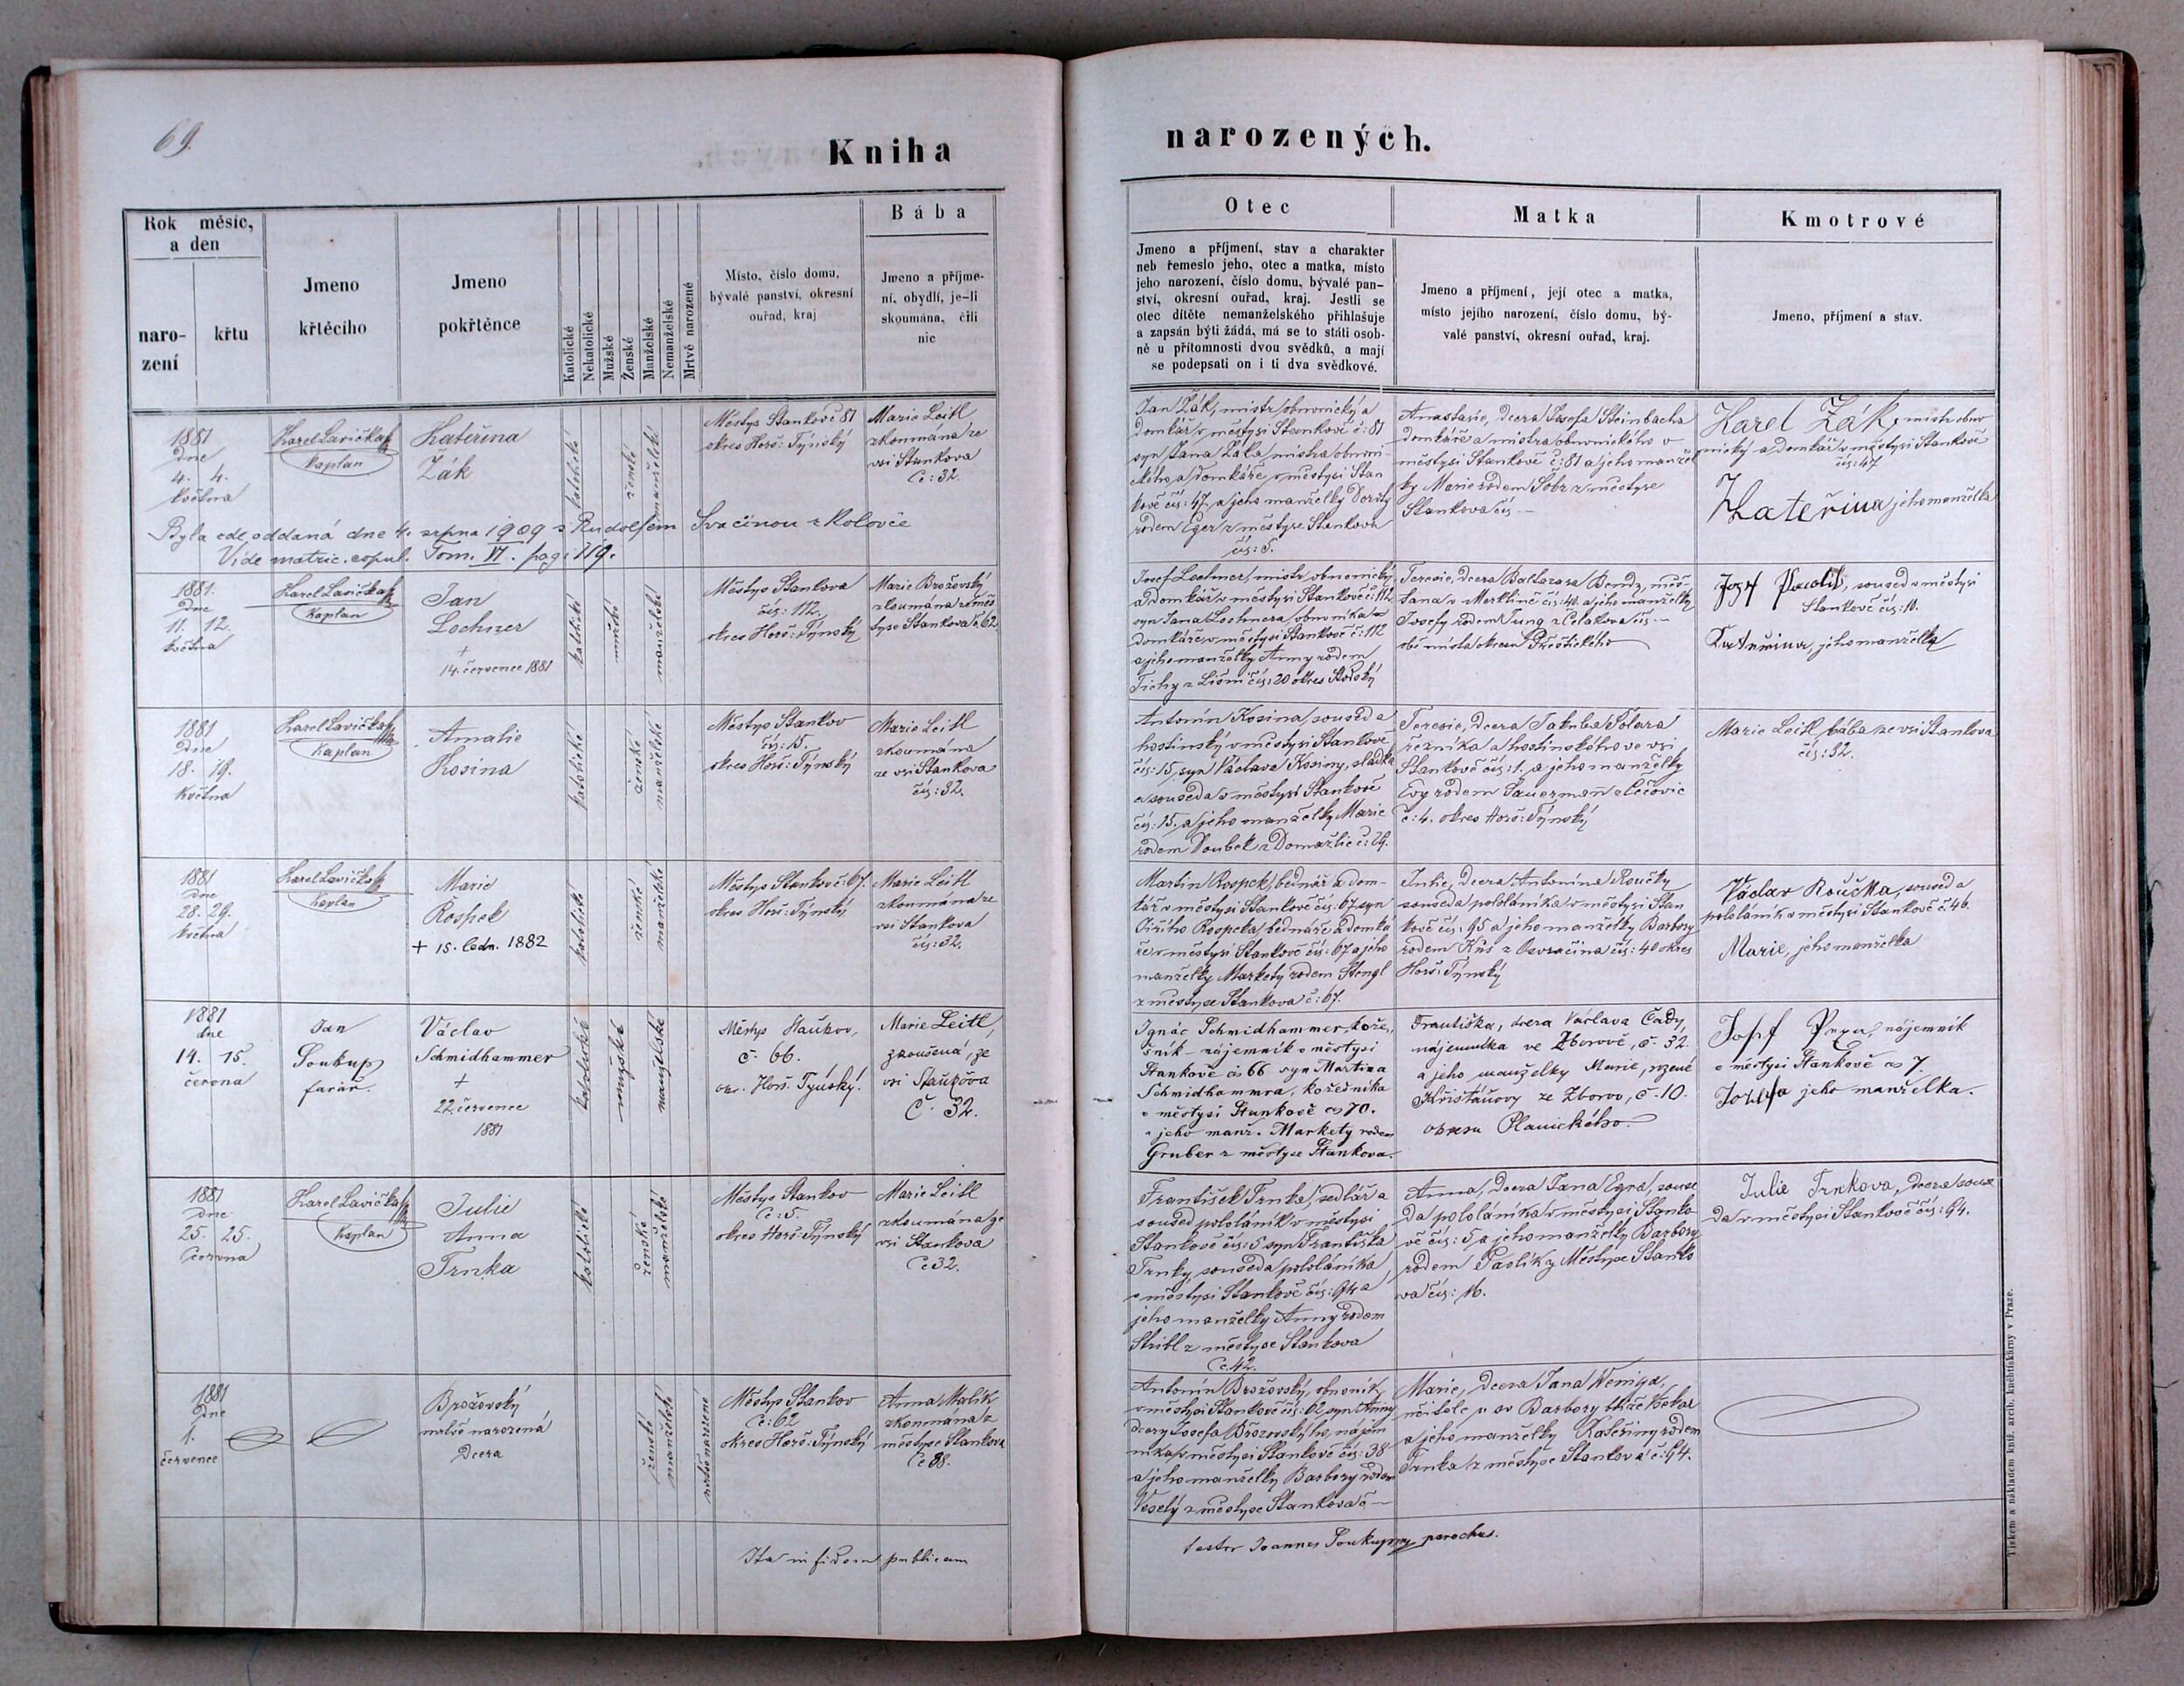 69.
Kniha
Rok měsíc,
a den
naro-
zení
křtu
Jmeno
křtěcího
Jmeno
pokřtěnce
Katolické
Nekatolické
Mužské
Ženské
Manželské
Nemanželské
Mrtvě narozené
Místo, číslo domu,
bývalé panství, okresní
ouřad, kraj
Bába
Jmeno a příjme-
ní, obydlí, je-li
skoumána, čili
nic
1881
dne
4. 4.
května
Karel Lavička
Kaplan
Kateřina
Žák
katolické
ženské
manželské
Městys Stankov č 81
okres Horš: Týnský
Marie Leitl
zkoumána ze
vsi Stankova
Č: 32.
Byla zde oddaná dne 4. srpna 1909 s Rudolfem Svačinou z Koloveče
Vide matric. copul. Tom. VI. pag: 119.
1881.
dne
11. 12.
května
Karel Lavička
Kaplan
Jan
Lochner
+
14. července 1881
katolické
mužské
manželské
Městys Stankova
čís: 112.
okres Horš: Týnský
Marie Brožovský
zkoumána z měs
tyse Stankova č 62
1881
dne
18. 19.
května
Karel Lavička
Kaplan
Amalie
Kosina
katolické
ženské
manželské
Městys Stankov
čís: 15.
okres Horš: Týnský
Marie Leitl
zkoumána
ze vsi Stankova
čís: 32.
1881
dne
28. 29.
května
Karel Lavička
Kaplan
Marie
Rospek
+ 15. ledn. 1882
katolické
ženské
manželské
Městys Stankov č: 67.
okres Horš: Týnský
Marie Leitl
zkoumána ze
vsi Stankova
čís: 32.
1881
dne
14. 15.
června
Jan
Soukup
farář.
Václav
Schmidhammer
+
22. července
1881
katolické
mužské
manželské
Městys Staňkov,
č. 66.
okr. Horš. Týnský.
Marie Leitl,
zkoušená, ze
vsi Staňkova
Č. 32.
1881
dne
25. 25.
června
Karel Lavička
Kaplan
Julie
Anna
Trnka
katolické
ženské
manželské
Městys Stankov
Č: 5.
okres Horš: Týnský
Marie Leitl
zkoumána ze
vsi Stankova
Č 32.
1881
dne
1.
července
Brožovský
mrtvě narozená
Dcera
ženské
manželské
mrtvě narozené
Městys Stankov
Č: 62
okres Horš: Týnský
Anna Malík
zkoumána z
městyse Stankova
Č 88.
Ita in fidem publicam
narozených.
Otec
Jmeno a příjmení, stav a charakter
neb řemeslo jeho, otec a matka, místo
jeho narození, číslo domu, bývalé pan-
ství, okresní ouřad, kraj. Jestli se
otec dítěte nemanželského přihlašuje
a zapsán býti žádá, má se to státi osob-
ně u přítomnosti dvou svědků, a mají
se podepsati on i ti dva svědkové.
Matka
Jmeno a příjmení, její otec a matka,
místo jejího narození, číslo domu, bý-
valé panství, okresní ouřad, kraj.
Kmotrové
Jmeno, příjmení a stav.
Jan Žák, mistr obuvnický a
domkář v městysi Stankově č: 81
syn Jana Žáka mistra obuvni-
ckého a domkáře v městysi Stan
kově čís: 47. a jeho manželky Doroty
rodem Eger z městyse Stankova
čís: 5.
Anastasie, dcera Josefa Steinbacha
domkáře a mistra obuvnického v
městysi Stankově č: 81 a jeho manžel
ky Marie rodem Sobr z městyse
Stankova čís –
Karel Žák, mistr obuv
nický a domkář v městysi Stankově
čís: 47
Kateřina jeho manželka
Josef Lochner, mistr obuvnický
a domkář v městysi Stankově č: 112
syn Jana Lochnera, obuvníka a
domkáře v městysi Stankově č: 112
a jeho manželky Anny rodem
Tichy z Lišni čís: 20 okres Stodský
Teresie, dcera Baltazara Bendz, měš-
ťana v Merklíně čís: 40. a jeho manželky
Josefy rodem Jung z Čelakova čís –
obě místa okresu Přeštického
Josef, soused v městysi
Stankově čís: 10.
Kateřina, jeho manželka
Antonín Kosina, soused a
hostinský v městysi Stankově
čís: 15, syn Václava Kosiny, sládka
a souseda v městysi Stankově
čís: 15. a jeho manželky Marie
rodem Doubek z Domažlic č: 29.
Teresie, dcera Jakuba Polara
řezníka a hostinského ve vsi
Stankově čís: 1. a jeho manželky
Evy rodem Sauerman z Čečovic
č: 4. okres Horš: Týnský
Marie Leitl, bába ze vsi Stankova
čís: 32.
Martin Rospek, bednář a dom-
kář v městysi Stankově čís: 67. syn
Jiřího Rospeka, bednáře a domká
ře v městysi Stankově čís: 67 a jeho
manželky Markety rodem Stengl
z městyse Stankova č: 67.
Julie, dcera Antonína Roučky
souseda pololáníka v městysi Stan
kově čís: 95 a jeho manželky Barbory
rodem Krůs z Osvračína čís: 40 okres
Horš: Týnský
Václav Roučka, soused a
pololáník v městysi Stankově č. 46.
Marie, jeho manželka
Ignác Schmidhammer, kože-
šník – nájemník v městysi
Stankově čs 66 syn Martina
Schmidhammra, kožešníka
v městysi Stankově čs 70.
a jeho manž. Markety rodem
Gruber z městyse Stankova.
Františka, dcera Václava Čady,
nájemníka ve Zborově, č. 32.
a jeho manželky Marie, rozené
Křišťánovy ze Zborov, č. 10.
okresu Planického.
Josef, nájemník
v městysi Stankově čs 7.
Josefa jeho manželka.
František Trnka, sedlář a
soused pololáník v městysi
Stankově čís: 5 syn Františka
Trnky, souseda pololáníka
v městysi Stankově čís: 94 a
jeho manželky Anny rodem
Stribl z městyse Stankova
Č 42.
Anna, dcera Jana Egra, souse
da pololáníka v městysi Stanko
vě čís: 5, a jeho manželky Barbory
rodem Pavlík z Městyse Stanko
va čís: 16.
Julie Trnkova, dcera souse
da v městysi Stankově čís: 94.
Antonín Brožovský, obuvník
v městysi Stankově čís: 62 syn Anny
dcery Josefa Brožovského, nájem
níka v městysi Stankově čís: 38
a jeho manželky Barbory rodem
Veselý z městyse Stankova č –
Marie, dcera Jana Weniga,
učitele u sv Barbory blíže
a jeho manželky Kateřiny rodem
Trnka z městyse Stankova č: 94.
testor Joannes Soukup parochus.
Tiskem a nákladem kníž. arcib. knihtiskárny v Praze.